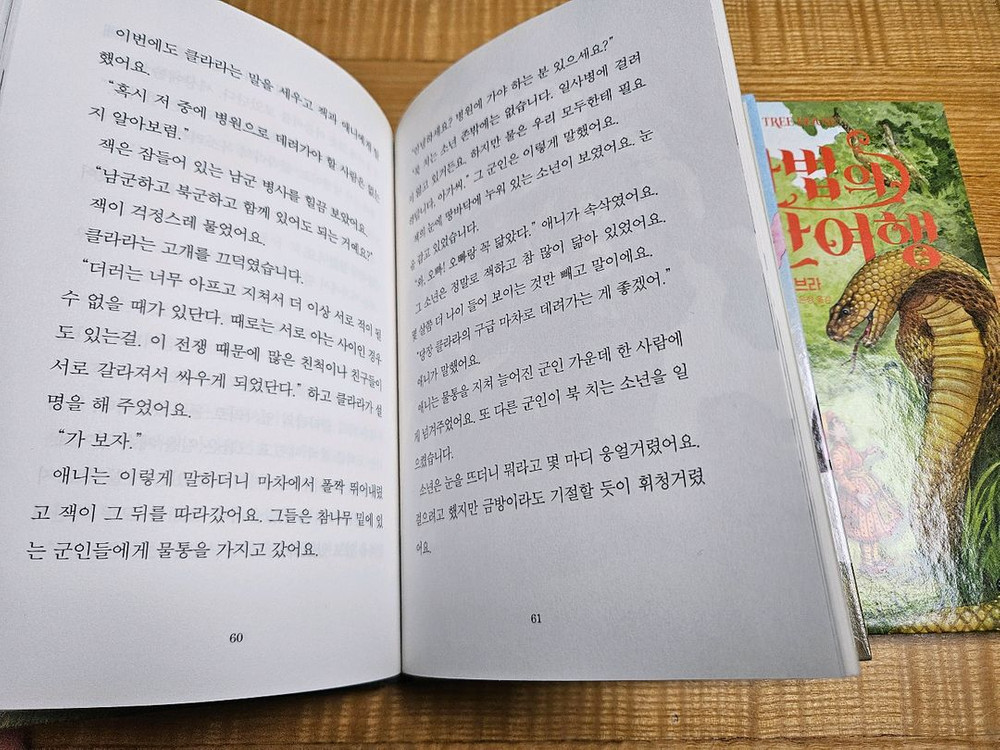 이번에도 클라라는 말을 세우고 잭과 애니에게 말
했어요.
“혹시 저 중에 병원으로 데려가야 할 사람은 없는
지 알아보렴.”
잭은 잠들어 있는 남군 병사를 힐끔 보았어요.
“남군하고 북군하고 함께 있어도 되는 거예요?”
잭이 걱정스레 물었어요.
클라라는 고개를 끄덕였습니다.
“더러는 너무 아프고 지쳐서 더 이상 서로 적이 될
수 없을 때가 있단다. 때로는 서로 아는 사이인 경우
도 있는걸. 이 전쟁 때문에 많은 친척이나 친구들이
서로 갈라져서 싸우게 되었단다.” 하고 클라라가 설
명을 해 주었어요.
“가 보자.”
애니는 이렇게 말하더니 마차에서 폴짝 뛰어내렸
고 잭이 그 뒤를 따라갔어요. 그들은 참나무 밑에 있
는 군인들에게 물통을 가지고 갔어요.
60
“안녕하세요? 병원에 가야 하는 분 있으세요?”
“북 치는 소년 존밖에는 없습니다. 일사병에 걸려
앓고 있거든요. 하지만 물은 우리 모두한테 필요
합니다, 아가씨.” 그 군인은 이렇게 말했어요.
잭의 눈에 땅바닥에 누워 있는 소년이 보였어요. 눈
을 감고 있었습니다.
“와, 오빠! 오빠랑 꼭 닮았다.” 애니가 속삭였어요.
그 소년은 정말로 잭하고 참 많이 닮아 있었어요.
몇 살쯤 더 나이 들어 보이는 것만 빼고 말이에요.
“당장 클라라의 구급 마차로 데려가는 게 좋겠어.”
애니가 말했어요.
애니는 물통을 지쳐 늘어진 군인 가운데 한 사람에
게 넘겨주었어요. 또 다른 군인이 북 치는 소년을 일
으켰습니다.
소년은 눈을 뜨더니 뭐라고 몇 마디 웅얼거렸어요.
걸으려고 했지만 금방이라도 기절할 듯이 휘청거렸
어요.
61
TREE
법의
여행
브라